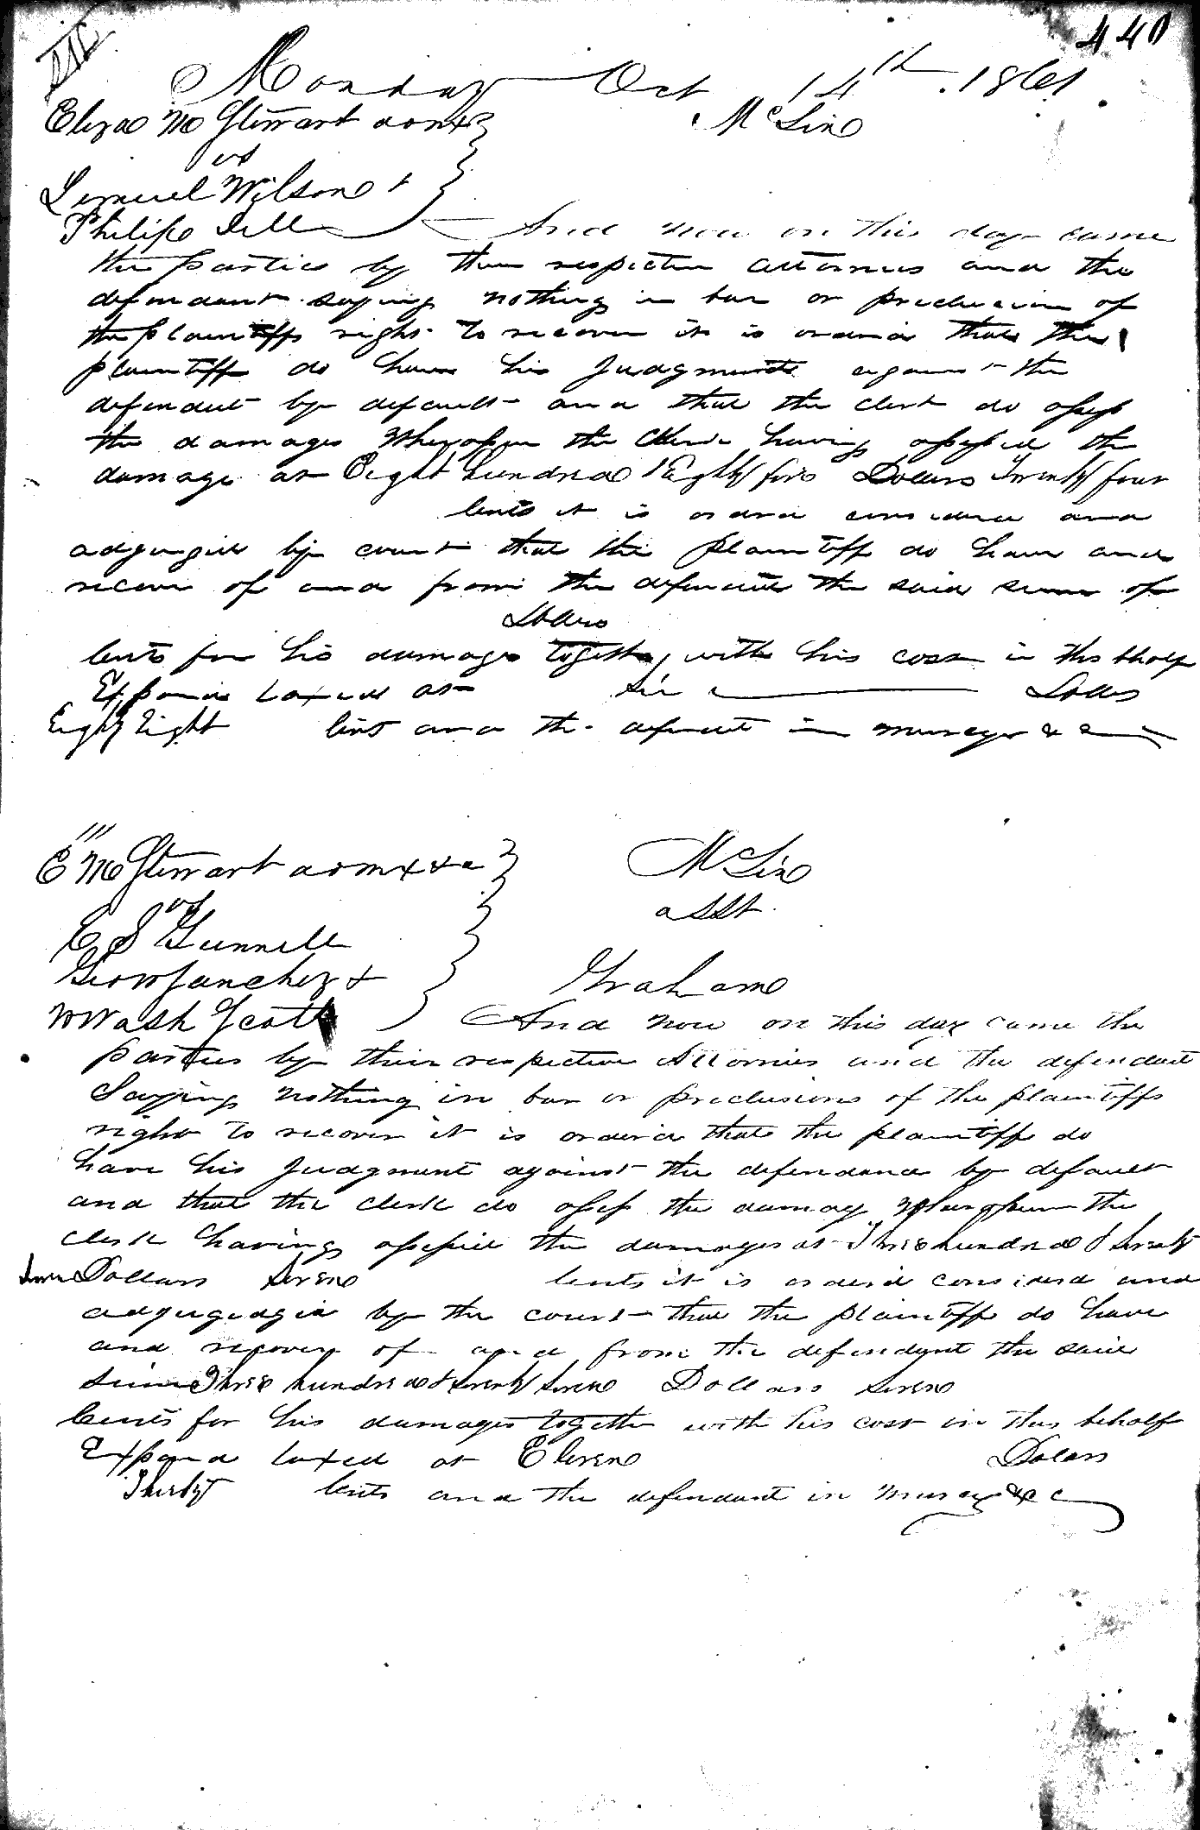 440
Monday Oct 14th 1861
Eliza M Stewart admx McLin
vs
Lemuel Wilson &
Philip Dell And now on this day came
the parties by their respective attornies and the
defendant saying nothing in bar or preclusion of
the plaintiffs right to recover it is orderd that the
plaintiff do have his Judgment against the
defendant by default and that the clerk do assess
the damages Whereupon the Clerk having assessed the
damage at Eight hundred & Eighty five Dollars Twenty four
Cents it is orderd considered and
adjudged by court that the plaintiff do have and
recover of and from the defendant the said sum of
Dollars
Cents for his damages together with his cost in this behalf
Expended taxed at Six Dollars
Eighty Eight Cents and the defendant in mercy &c
E M Stewart admx &c McLin
vs asst.
E S Gunnell
Geo W Sanchez & Graham
W Wash Scott And now on this day came the
parties by their respective Attornies and the defendant
Saying nothing in bar or preclusion of the plaintiffs
right to recover it is orderd that the plaintiff do
have his Judgment against the defendand by default
and that the clerk do assess the damag Whereupon the
clerk having assessed the damages at Three hundred & Seventy
Seven Dollars Seven Cents it is orderd considerd and
adjugedged by the court that the plaintiff do have
and recover of and from the defendant the said
sum Three hundred & Seventy Seven Dollars Seven
Cents for his damages together with his cost in this behalf
Expend taxed at Eleven Dolars
Thirty Cents and the defendant in mercy &c